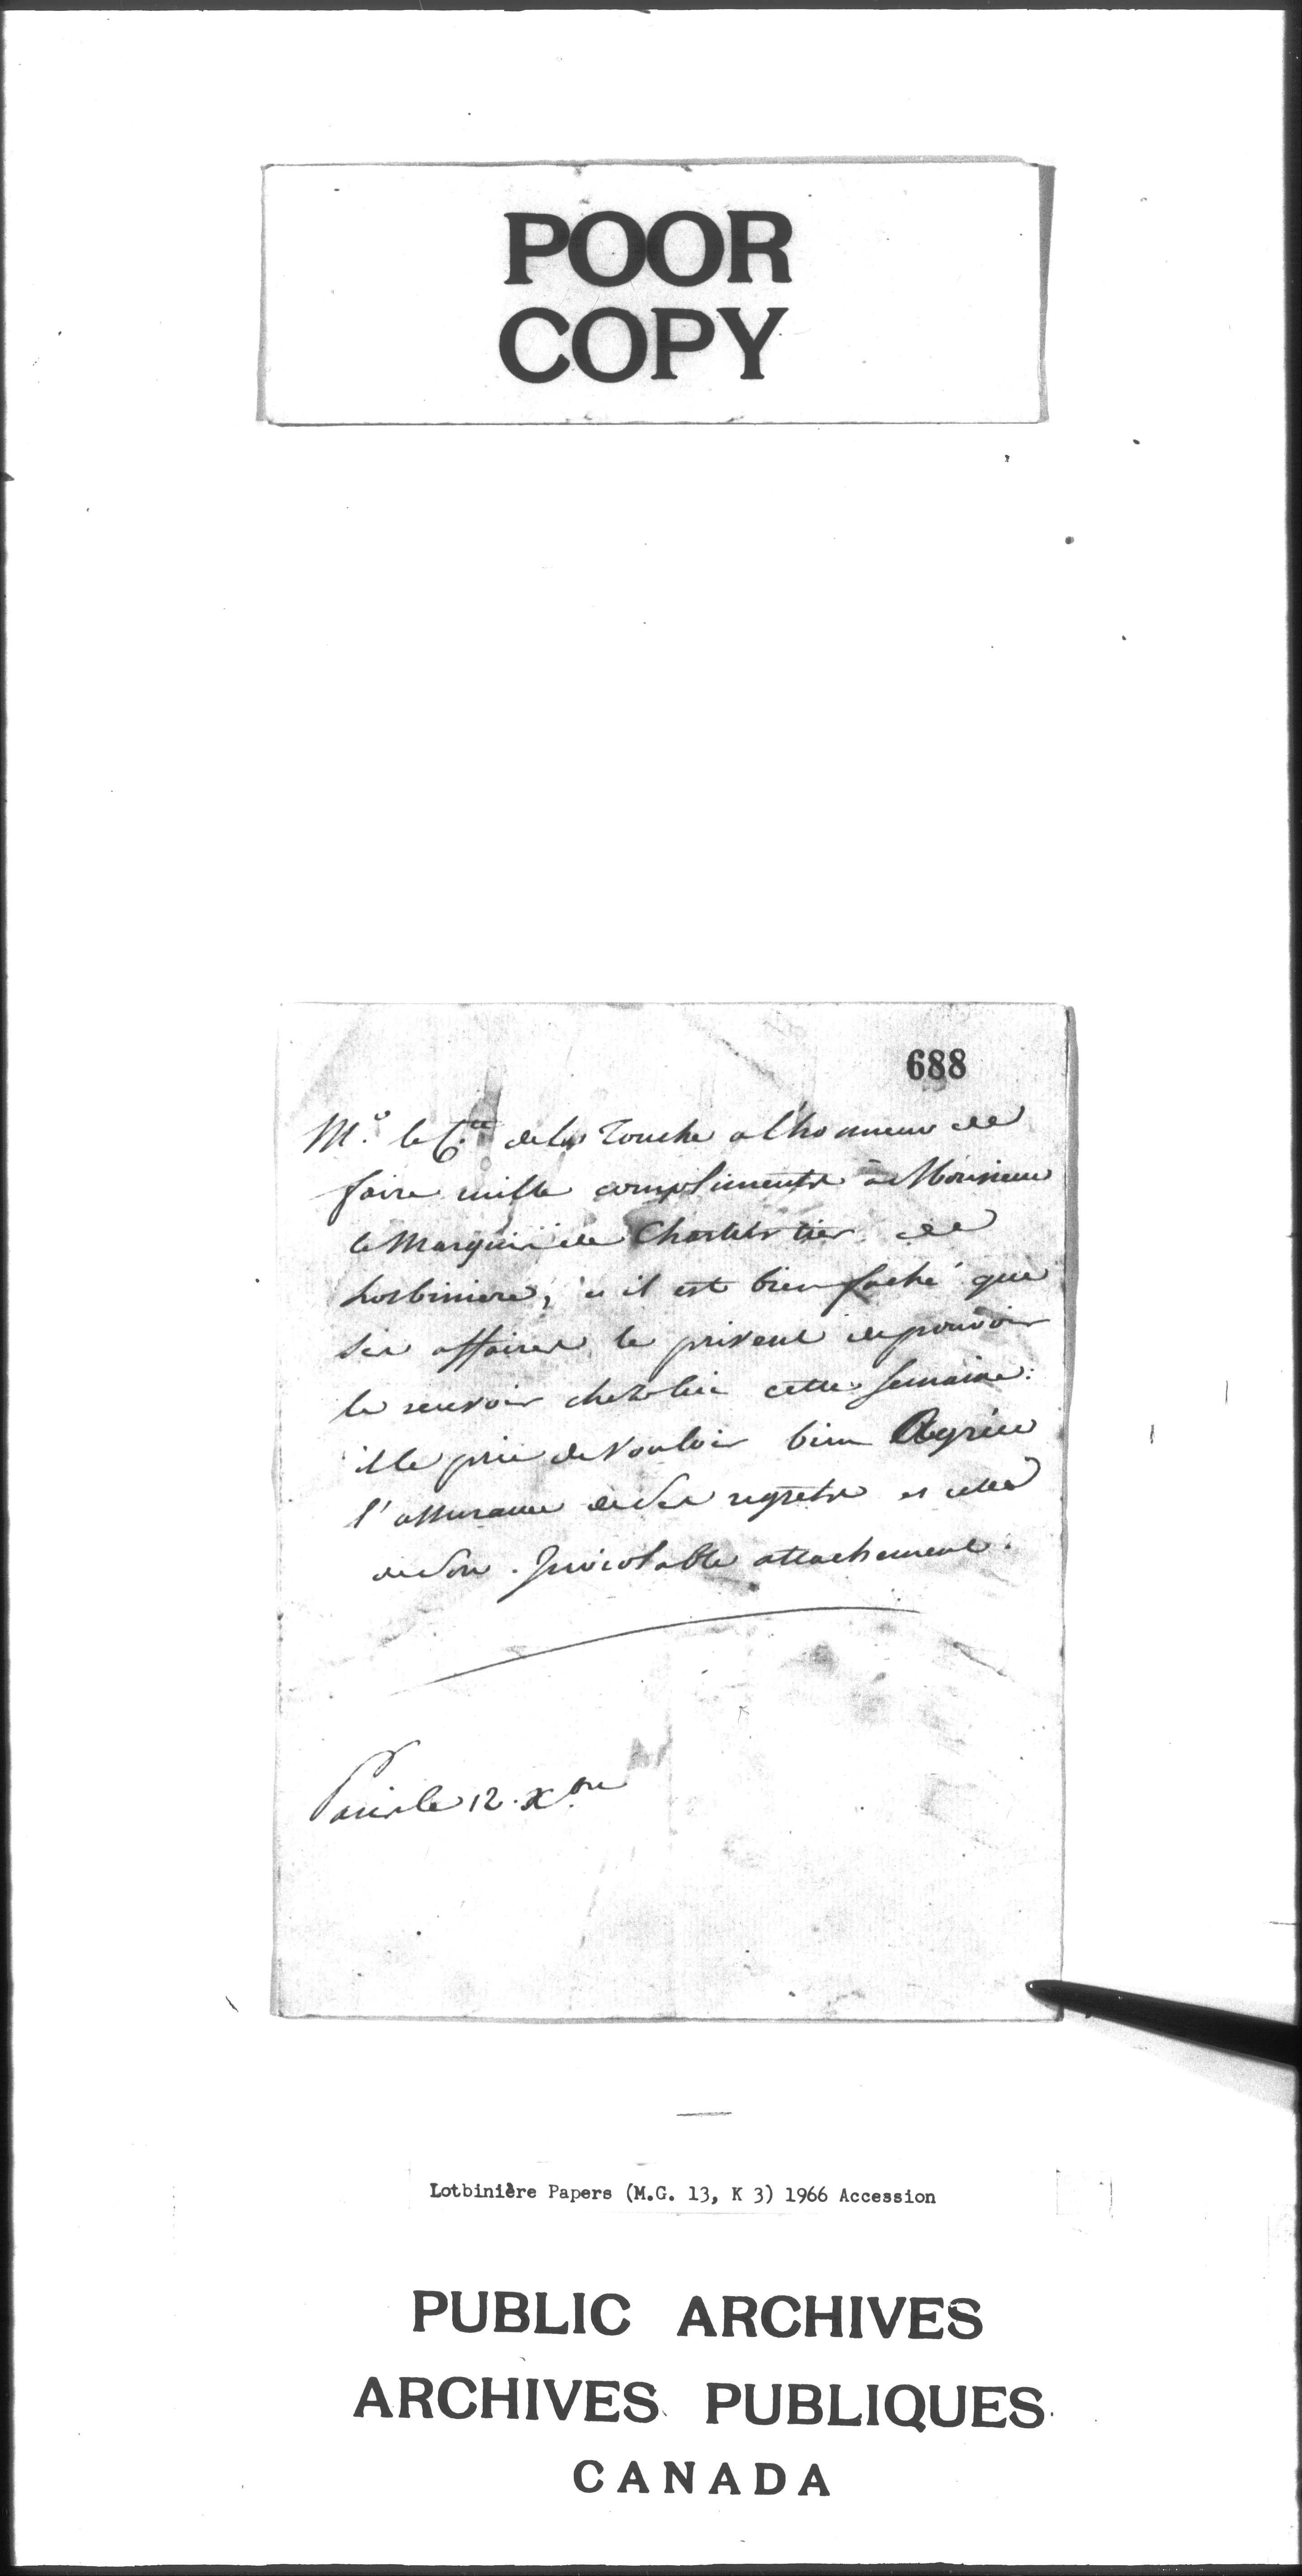 POOR
COPY
688
M.r le C.te de la Touche a l'honneur de
faire mille compliments à Monsieur
le Marquis de Chartier de
Lotbiniere, et il est bien faché que
ses affaires le privent de pouvoir
le recevoir chez lui cette semaine:
il le prie de vouloir bien Agréer
l'assurance de ses regrets et celle
de son Inviolable attachement.
Paris le 12. Xbre
Lotbinière Papers (M.G. 13, K 3) 1966 Accession
PUBLIC ARCHIVES
ARCHIVES PUBLIQUES
CANADA